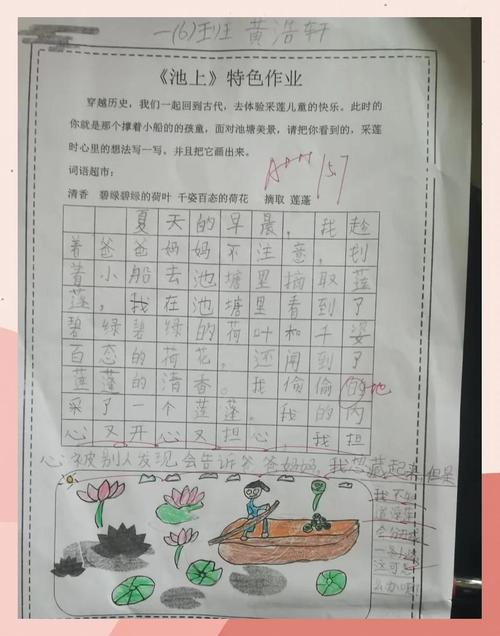 一(6)班 黄浩轩
《池上》特色作业
穿越历史，我们一起回到古代，去体验采莲儿童的快乐。此时的
你就是那个撑着小船的的孩童，面对池塘美景，请把你看到的，采莲
时心里的想法写一写。并且把它画出来。
词语超市：
清香 碧绿碧绿的荷叶 千姿百态的荷花 摘取 莲蓬
A+++ 157
夏天的早晨，我趁
着爸爸妈妈不注意，划
着小船去池塘里摘取莲
蓬，我在池塘里看到了
碧绿碧绿的荷叶和千姿
百态的荷花，还闻到了
莲蓬的清香。我偷偷的地
采了一个莲蓬。我的内
心又开心又担心，我担
心被别人发现会告诉爸爸妈妈，我想藏起来，但是
我不知
道浮萍
会分开
一条小
这可怎
么办呢